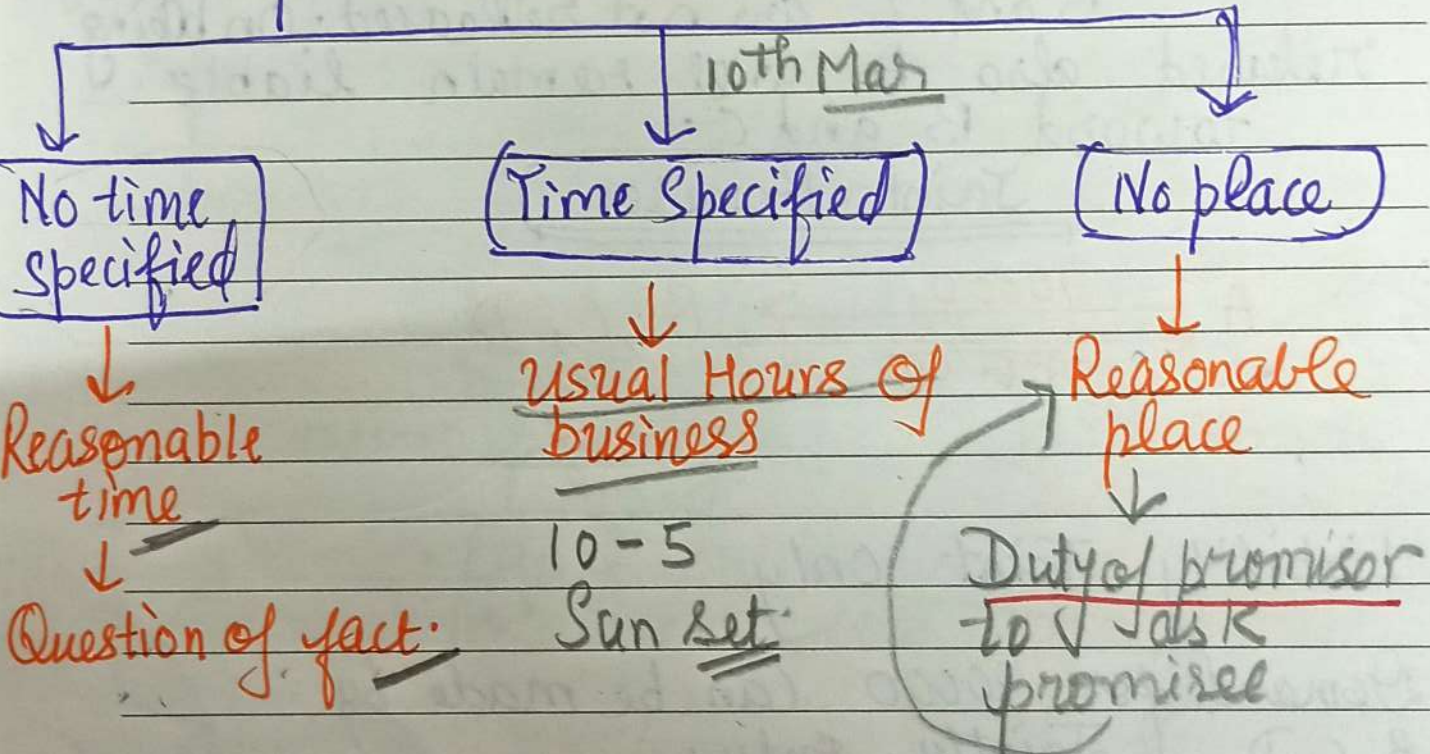 10th Mar
No time
specified
Time Specified
No place
Reasonable
time
Question of fact.
Usual Hours Of
business
10-5
Sun set.
Reasonable
place
Duty of promisor
to ask
promisee